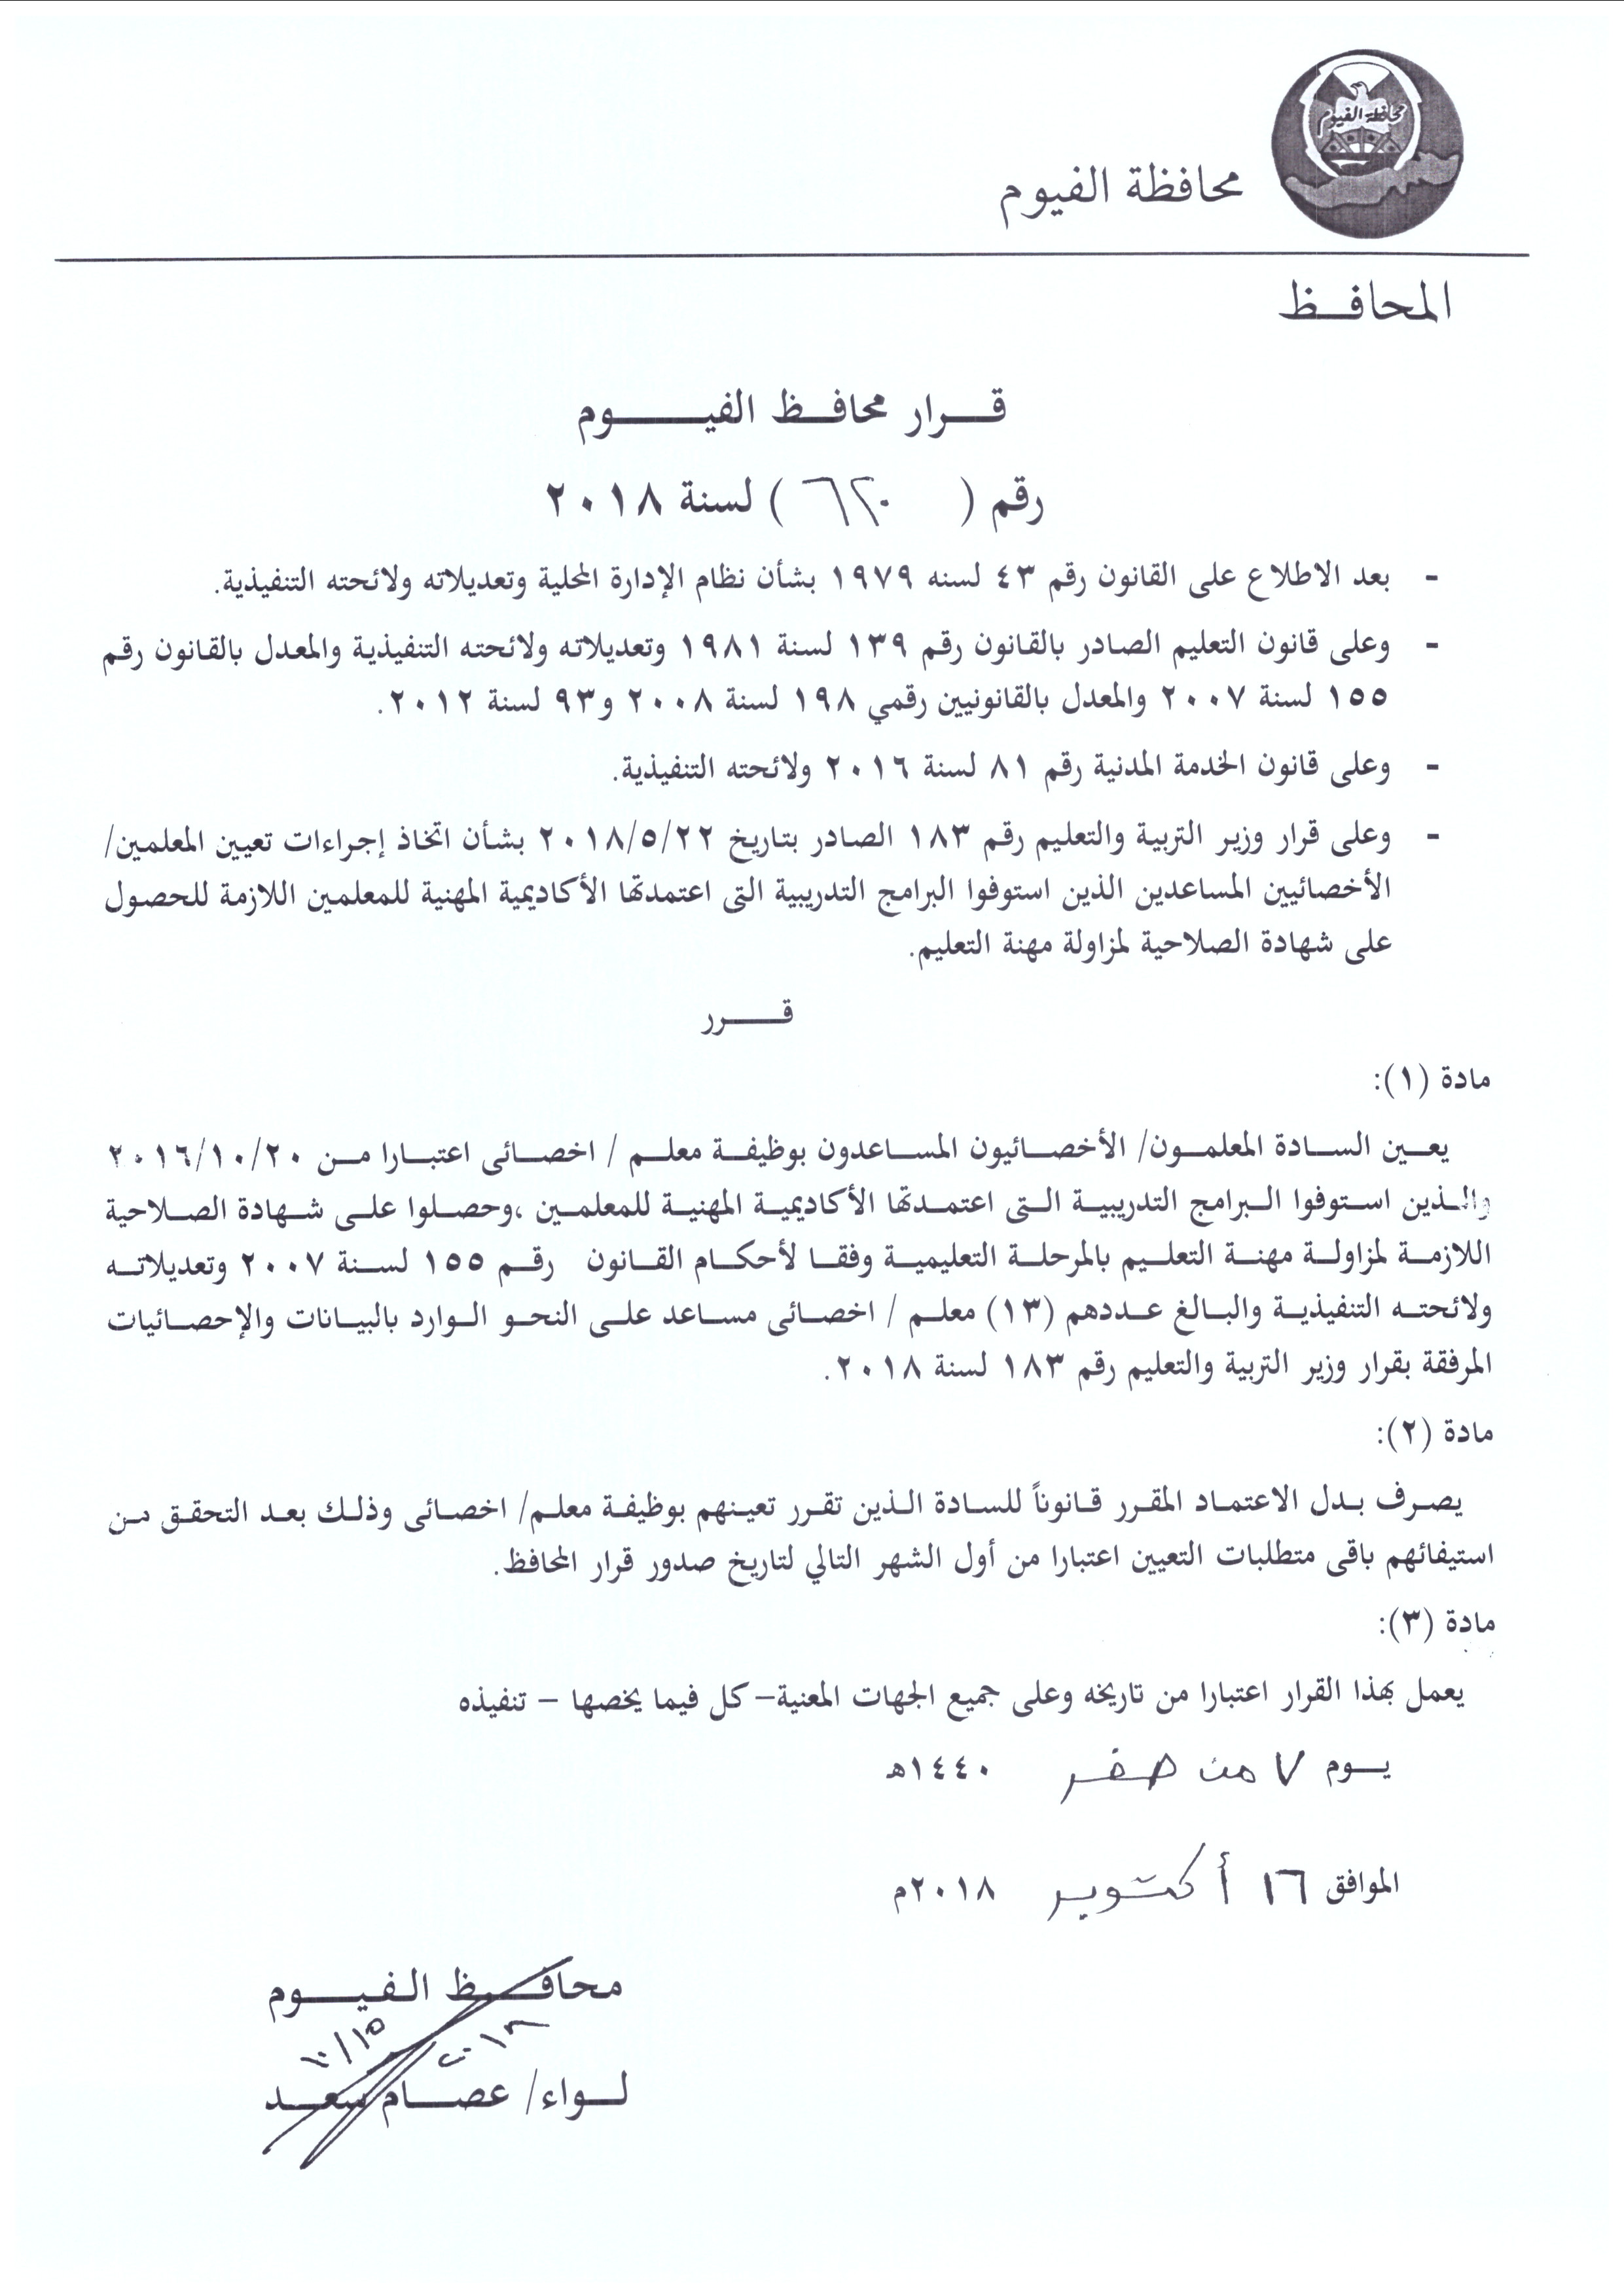 محافظة الفيوم
محافظة الفيوم
المحافظ
قرار محافظ الفيوم
رقم ( ٦٢٠ ) لسنة ٢٠١٨
- بعد الاطلاع على القانون رقم ٤٣ لسنه ١٩٧٩ بشأن نظام الإدارة المحلية وتعديلاته ولائحته التنفيذية.
- وعلى قانون التعليم الصادر بالقانون رقم ١٣٩ لسنة ١٩٨١ وتعديلاته ولائحته التنفيذية والمعدل بالقانون رقم
١٥٥ لسنة ٢٠٠٧ والمعدل بالقانونيين رقمي ١٩٨ لسنة ٢٠٠٨ و٩٣ لسنة ٢٠١٢.
- وعلى قانون الخدمة المدنية رقم ٨١ لسنة ٢٠١٦ ولائحته التنفيذية.
- وعلى قرار وزير التربية والتعليم رقم ١٨٣ الصادر بتاريخ ٢٠١٨/٥/٢٢ بشأن اتخاذ إجراءات تعيين المعلمين/
الأخصائيين المساعدين الذين استوفوا البرامج التدريبية التى اعتمدتها الأكاديمية المهنية للمعلمين اللازمة للحصول
على شهادة الصلاحية لمزاولة مهنة التعليم.
قرر
مادة (١):
يعين السادة المعلمون/ الأخصائيون المساعدون بوظيفة معلم / اخصائى اعتبارا من ٢٠١٦/١٠/٢٠
والذين استوفوا البرامج التدريبية التى اعتمدتها الأكاديمية المهنية للمعلمين ،وحصلوا على شهادة الصلاحية
اللازمة لمزاولة مهنة التعليم بالمرحلة التعليمية وفقا لأحكام القانون رقم ١٥٥ لسنة ٢٠٠٧ وتعديلاته
ولائحته التنفيذية والبالغ عددهم (١٣) معلم / اخصائى مساعد على النحو الوارد بالبيانات والإحصائيات
المرفقة بقرار وزير التربية والتعليم رقم ١٨٣ لسنة ٢٠١٨.
مادة (٢):
يصرف بدل الاعتماد المقرر قانوناً للسادة الذين تقرر تعينهم بوظيفة معلم/ اخصائى وذلك بعد التحقق من
استيفائهم باقى متطلبات التعيين اعتبارا من أول الشهر التالي لتاريخ صدور قرار المحافظ.
مادة (٣):
يعمل بهذا القرار اعتبارا من تاريخه وعلى جميع الجهات المعنية– كل فيما يخصها – تنفيذه
يوم ٧ من صفر ١٤٤٠هـ
الموافق ١٦ أكتوبر ٢٠١٨م
محافظ الفيوم
١٠/١٥ ٢٠١٨
لواء/ عصام سعد